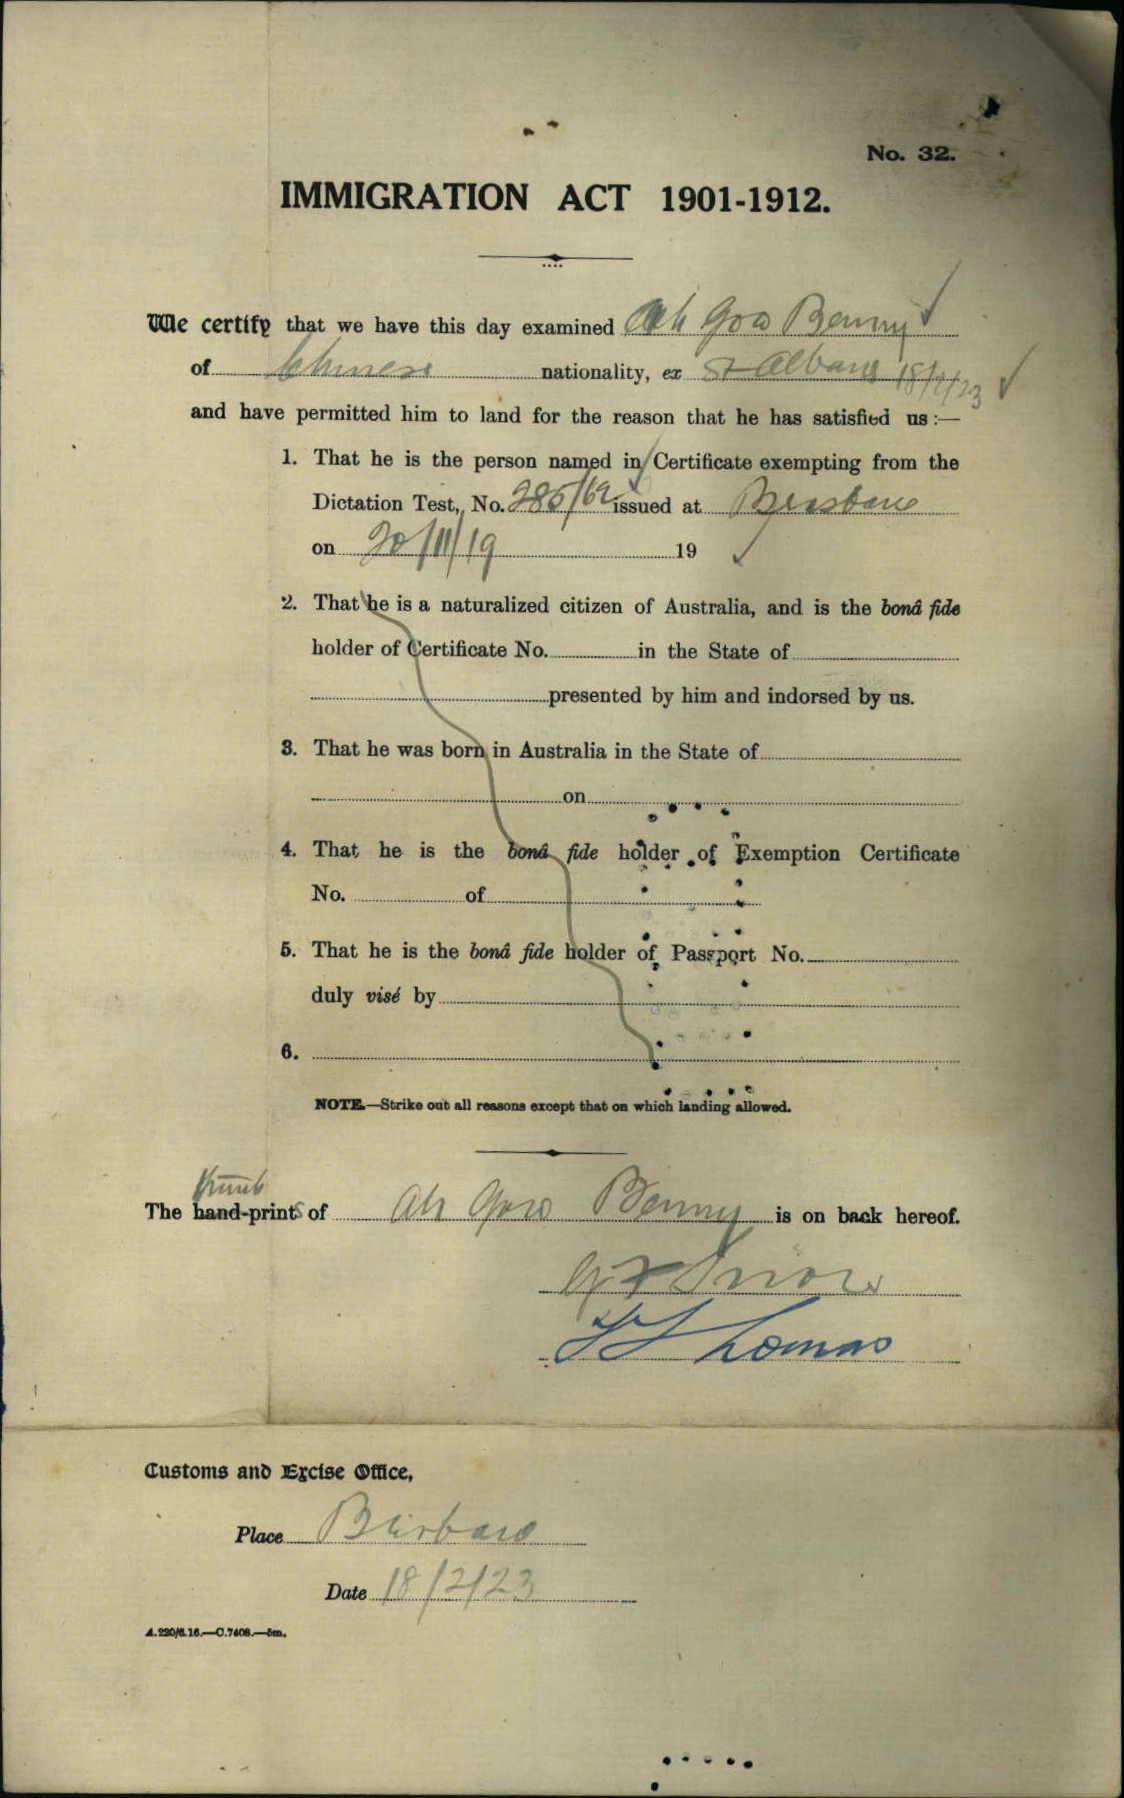 No. 32.
IMMIGRATION ACT 1901-1912.
We certify that we have this day examined Ah Gow Benny
of Chinese nationality, ex St Albans 18/2/23
and have permitted him to land for the reason that he has satisfied us :—
1. That he is the person named in Certificate exempting from the
Dictation Test, No. 285/69 issued at Brisbane
on 20/11/19 19
2. That he is a naturalized citizen of Australia, and is the bonâ fide
holder of Certificate No. in the State of
presented by him and indorsed by us.
3. That he was born in Australia in the State of
on
4. That he is the bonâ fide holder of Exemption Certificate
No. of
5. That he is the bonâ fide holder of Passport No.
duly visé by
6.
NOTE.—Strike out all reasons except that on which landing allowed.
thumb
The hand-prints of Ah Gow Benny is on back hereof.
Lomas
Customs and Excise Office,
Place Brisbane
Date 18/2/23
A.220/6.16.—C.7408.—5m.